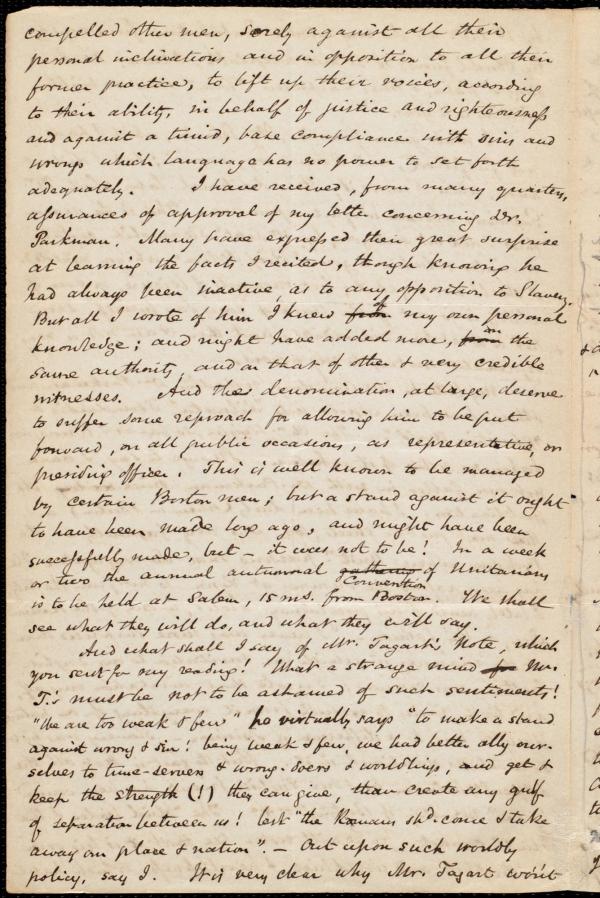 compelled other men, sorely against all their
personal inclinations and in opposition to all their
former practice, to lift up their voices, according
to their ability, in behalf of justice and righteousness
and against a timid, base compliance with sin and
wrong which language has no power to set forth
adequately. I have received, from many quarters,
assurances of approval of my letter concerning Dr.
Parkman. Many have expressed their great surprise
at learning the facts I recited, though knowing he
had always been inactive, as to any opposition to Slavery.
But all I wrote of him I knew from of my own personal
knowledge; and might have added more, from on the
same authority, and on that of other & very credible
witnesses. And the denomination, at large, deserve
to suffer some reproach for allowing him to be put
forward, on all public occasions, as representative, or
presiding officer. This is well known to be managed
by certain Boston men; but a stand against it ought
to have been made long ago, and might have been
successfully made, but – it was not to be! In a week
or two the annual autumnal gathering of Unitarians
Convention
is to be held at Salem, 15 ms. from Boston. We shall
see what they will do, and what they will say.
And what shall I say of Mr. Tagart's Note, which
you sent for my reading! What a strange mind for Mr.
T.'s must be not to be ashamed of such sentiments!
"We are too weak & few" he virtually says "to make a stand
against wrong & sin! being weak & few, we had better ally our-
selves to time-servers & wrong-doers & worldlings, and get &
keep the strength (!) they can give, than create any gulf
of separation between us! lest "the Romans shd. come & take
away our place & nation". – Out upon such worldly
policy, say I. It is very clear why Mr. Tagart won't